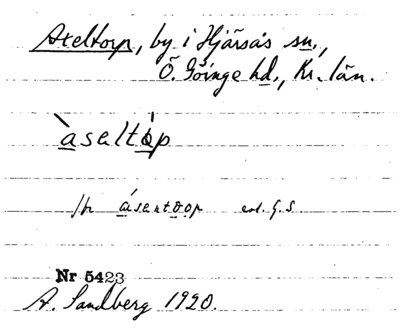 Axeltorp, by i Hjärsås sn.,
Ö. Göinge hd., Kr. län.
àsaltòp
/hr ásantoop enl. G.S.
Nr 5423
A. Sandberg 1920.